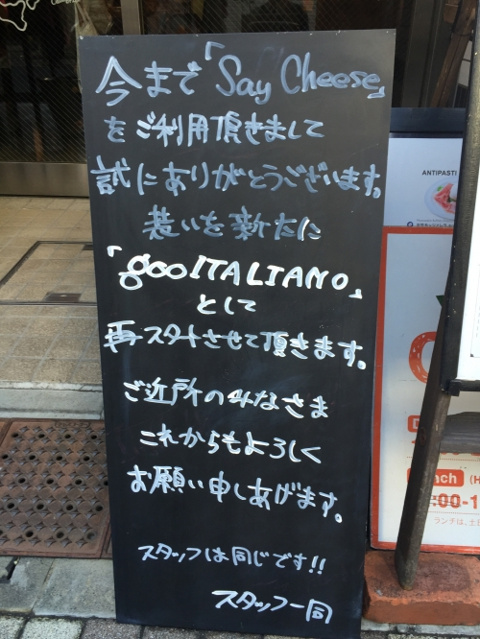 今まで「Say Cheese」
をご利用頂きまして
試にありがとうございます。
装いを新たに
「gooITALIANO」
として
再スタートさせて頂きます。
ご近所のみなさま
これからもよろしく
お願い申しあげます。
スタッフは同じです!!
スタッフ一同
ANTIPASTI